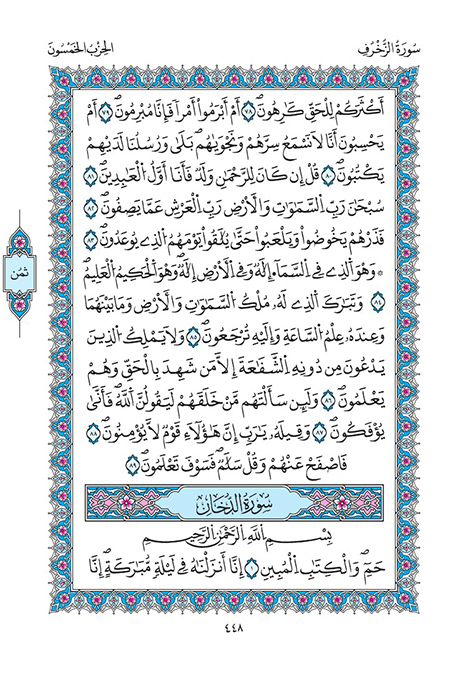 سُورَةُ الزُّخْرُفِ
الحِزْبُ الخَمْسُونَ
أَكْثَرَكُمْ لِلْحَقِّ كَٰرِهُونَۖ ٧٨ أَمَ اَبْرَمُوٓاْ أَمْراٗ فَإِنَّا مُبْرِمُونَۖ ٧٩ أَمْ
يَحْسِبُونَ أَنَّا لَا نَسْمَعُ سِرَّهُمْ وَنَجْوَيٰهُمۖ بَلَىٰ وَرُسُلُنَا لَدَيْهِمْ
يَكْتُبُونَۖ ٨٠ قُلِ اِن كَانَ لِلرَّحْمَٰنِ وَلَدٞ فَأَنَآ أَوَّلُ اُ۬لْعَٰبِدِينَۖ ٨١
سُبْحَٰنَ رَبِّ اِ۬لسَّمَٰوَٰتِ وَالَارْضِ رَبِّ اِ۬لْعَرْشِ عَمَّا يَصِفُونَۖ ٨٢
فَذَرْهُمْ يَخُوضُواْ وَيَلْعَبُواْ حَتَّىٰ يُلَٰقُواْ يَوْمَهُمُ اُ۬لذِے يُوعَدُونَۖ ٨٣
۞ وَهُوَ اَ۬لذِے فِے اِ۬لسَّمَآءِ اِ۪لَٰهٞ وَفِے اِ۬لَارْضِ إِلَٰهٞۖ وَهُوَ اَ۬لْحَكِيمُ اُ۬لْعَلِيمُۖ
٨٤ وَتَبَٰرَكَ اَ۬لذِے لَهُۥ مُلْكُ اُ۬لسَّمَٰوَٰتِ وَالَارْضِ وَمَا بَيْنَهُمَا
وَعِندَهُۥ عِلْمُ اُ۬لسَّاعَةِ وَإِلَيْهِ تُرْجَعُونَۖ ٨٥ وَلَا يَمْلِكُ اُ۬لذِينَ
يَدْعُونَ مِن دُونِهِ اِ۬لشَّفَٰعَةَ إِلَّا مَن شَهِدَ بِالْحَقِّ وَهُمْ
يَعْلَمُونَۖ ٨٦ وَلَئِن سَأَلْتَهُم مَّنْ خَلَقَهُمْ لَيَقُولُنَّ اَ۬للَّهُۖ فَأَنَّىٰ
يُوفَكُونَۖ ٨٧ وَقِيلَهُۥ يَٰرَبِّ إِنَّ هَٰٓؤُلَآءِ قَوْمٞ لَّا يُومِنُونَۖ ٨٨
فَاصْفَحْ عَنْهُمْ وَقُلْ سَلَٰمٞۖ فَسَوْفَ تَعْلَمُونَۖ ٨٩
سُورَةُ الدُّخَانِ
بِسْمِ اِ۬للَّهِ اِ۬لرَّحْمَٰنِ اِ۬لرَّحِيمِ
حَمِٓۖ وَالْكِتَٰبِ اِ۬لْمُبِينِ ١ إِنَّآ أَنزَلْنَٰهُ فِے لَيْلَةٖ مُّبَٰرَكَةٍۖ اِنَّا
ثُمُن
٤٤٨